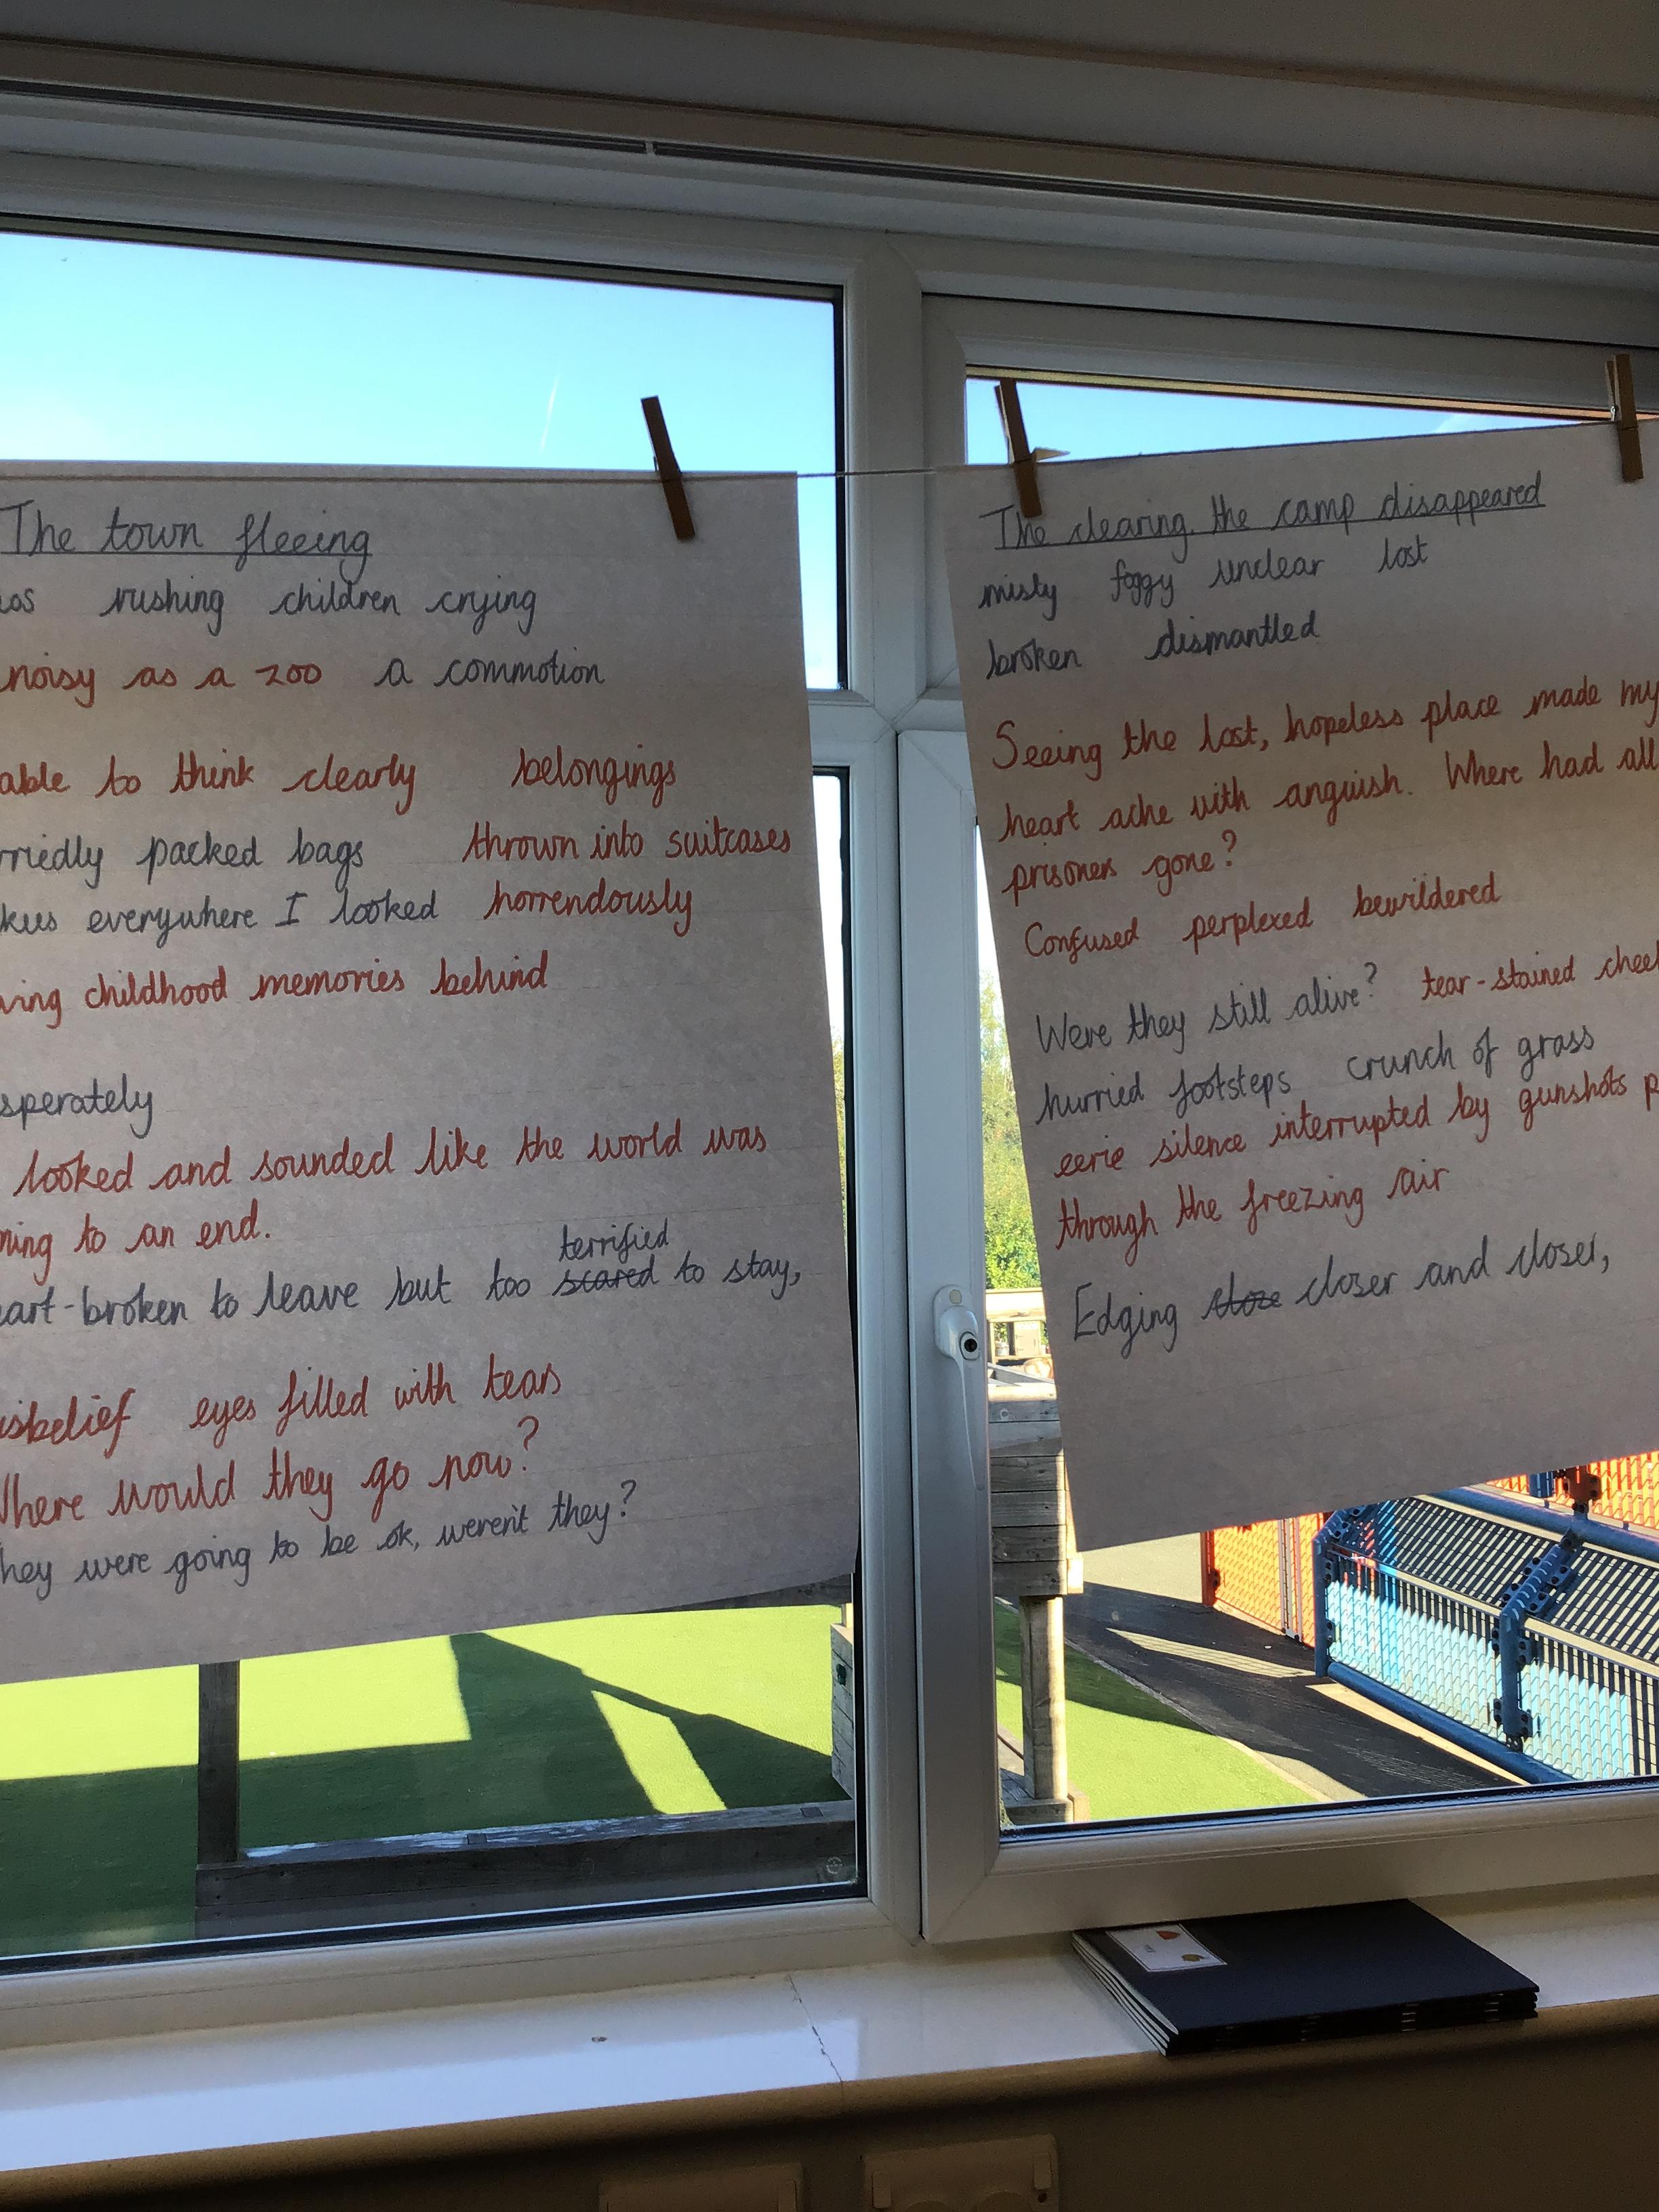 The town fleeing
os rushing children crying
noisy as a zoo a commotion
able to think clearly belongings
rriedly packed bags thrown into suitcases
kus everywhere I looked horrendously
ving childhood memories behind
sperately
looked and sounded like the world was
ming to an end.
terrified
eart-broken to leave but too scared to stay,
isbelief eyes filled with tears
Where would they go now?
hey were going to be ok, weren't they?
The clearing. the camp disappeared
misty foggy unclear lost
broken dismantled
Seeing the lost, hopeless place made my
heart ache with anguish. Where had all
prisoners gone?
Confused perplexed bewildered
Were they still alive? tear-stained cheek
hurried footsteps crunch of grass
eerie silence interrupted by gunshots p
through the freezing air
Edging close closer and closer,